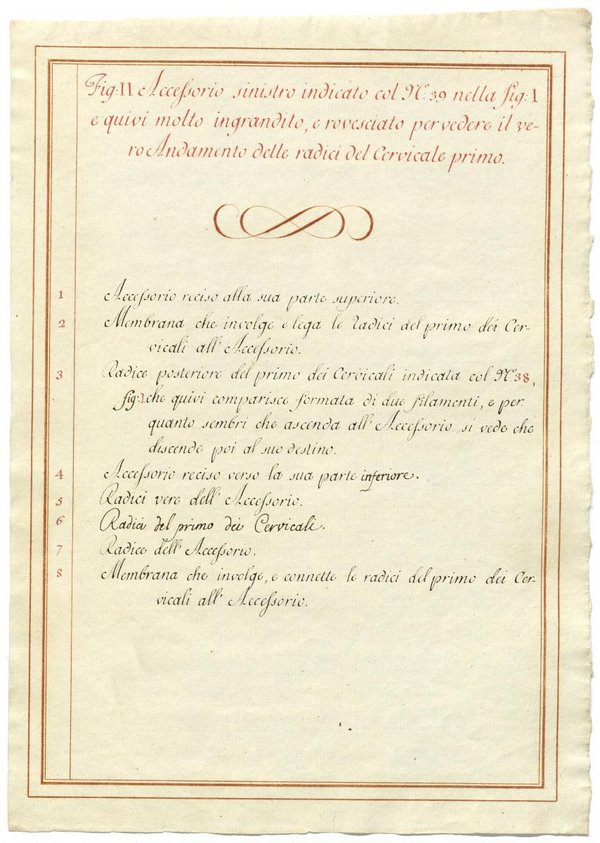 Fig: II Accessorio sinistro indicato col N.º 39 nella fig: I
e quivi molto ingrandito, e rovesciato per vedere il ve-
ro Andamento delle radici del Cervicale primo.
1 Accessorio reciso alla sua parte superiore.
2 Membrana che involge e lega le Radici del primo dei Cer-
vicali all'Accessorio.
3 Radice posteriore del primo dei Cervicali indicata col N.º 38,
fig: I. che quivi comparisce formata di due filamenti, e per
quanto sembri che ascenda all'Accessorio si vede che
discende poi al suo destino.
4 Accessorio reciso verso la sua parte inferiore.
5 Radici vere dell'Accessorio.
6 Radici del primo dei Cervicali.
7 Radice dell'Accessorio.
8 Membrana che involge, e connette le radici del primo dei Cer-
vicali all'Accessorio.